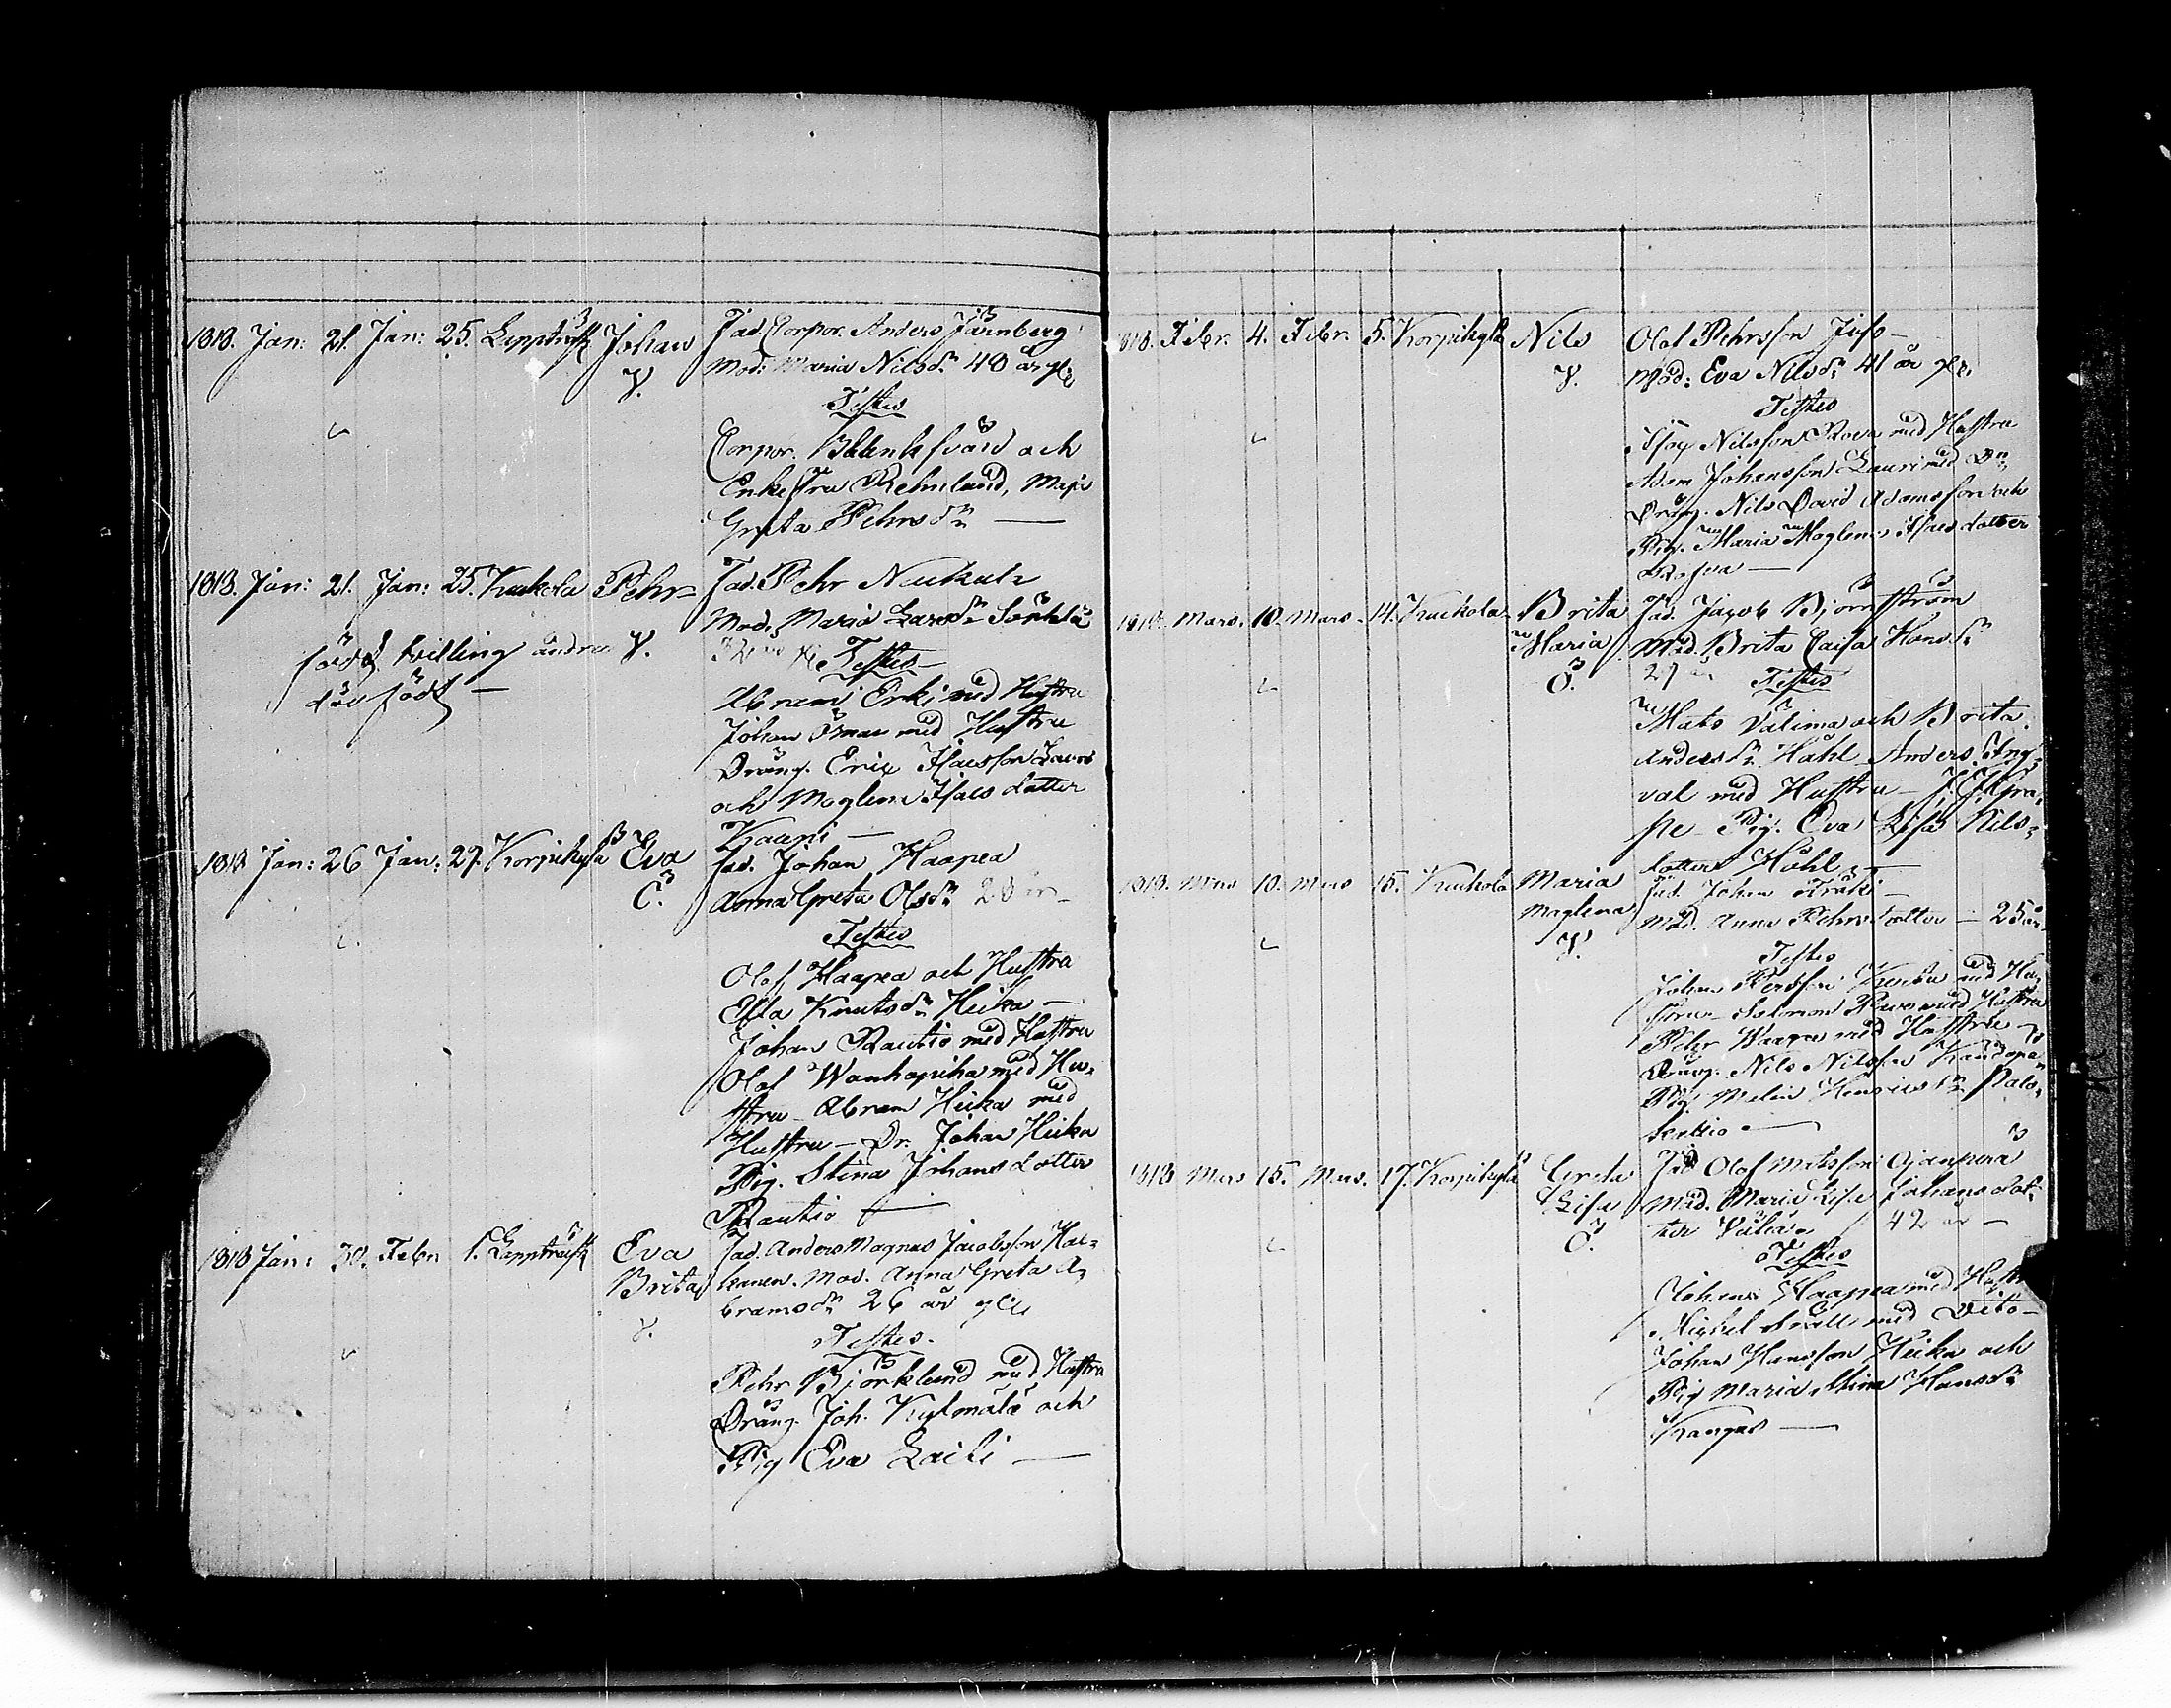 1818. Jan: 21. Jan: 25. Lappträsk Johan
V.
Fad. Corpor. Anders Järnberg
Mod: Maria Nilsdr 40 år gl
Testes
Corpor. Blanksvärd och
Enke Fru Rehnlund, Maja
Greta Pehrsdr
1818. Jan: 21. Jan: 25. Kukola Pehr
V.
född tvilling andra
död född
Fad. Pehr Nukula
Mod. Maria Larsdr
Testes
Abram Erki med Hustru
Johan Öman med Hustru
Dräng. Eric Isacsson
och Maglena Isacs dotter
Kauppi
1818 Jan: 26 Jan: 27. Korpikylä Eva
Fad. Johan Haapea
Anna Greta Olsdr 28 år
Testes
Olof Haapea och Hustru
Knutsdr Heika
Johan Rautio med Hustru
Olof Wanhapiha med Hu-
stru Abram Heika med
Hustru Dr. Johan Heika
Pig. Stina Johansdotter
Rautio
1818 Jan: 30. Febr. 1. Lappträsk Eva
Brita
V.
Fad. Anders Magnus Jacobsson
Mod. Anna Greta A-
bramsdr 26 år gl
Testes.
Pehr Björklund med Hustru
Dräng. Joh. Kylmälä och
Pig Eva
1818. Febr. 4. Febr. 5. Korpikylä Nils
V.
Olof Pehrsson Juso
Mod: Eva Nilsdr 41 år gl.
Testes
Nilsson Rova med Hustru
Adam Johansson Lauri med Do
Dräng. Nils David Adamsson och
Pig. Maria Maglena Isacs dotter
1818. Mars. 10. Mars. 14. Kukola Brita
Maria
Ö.
Fad. Jacob Björnström
Mod. Brita Caisa Hansdr
27 år Testes
Mats Välimaa och Brita
Andersdr Håhl Anders Äng-
val med Hustru J. J. Kra-
pe Pig. Eva Lisa Nils-
dotter Håhl
1818. Mars 10. Mars 15. Kukola Maria
Maglena
V.
Fad. Johan
Mod. Anna Pehrsdotter 25 år
Testes
Johan Persson med Hu-
stru Salomon med Hustru
Pehr Waapea med Hustru
Dräng. Nils Nilsson
Pig. Malin Henricsdr Palo-
1818 Mars 15. Mars. 17. Korpikylä Greta
Lisa
Ö.
Fad. Olof Matsson Ojanperä
Mod. Maria Lisa Johansdot-
ter 42 år
Testes
Johan Haapea med Hustru
Michel med Dito
Johan Hansson Heika och
Pig Maria Stina Hansdr
Kangas